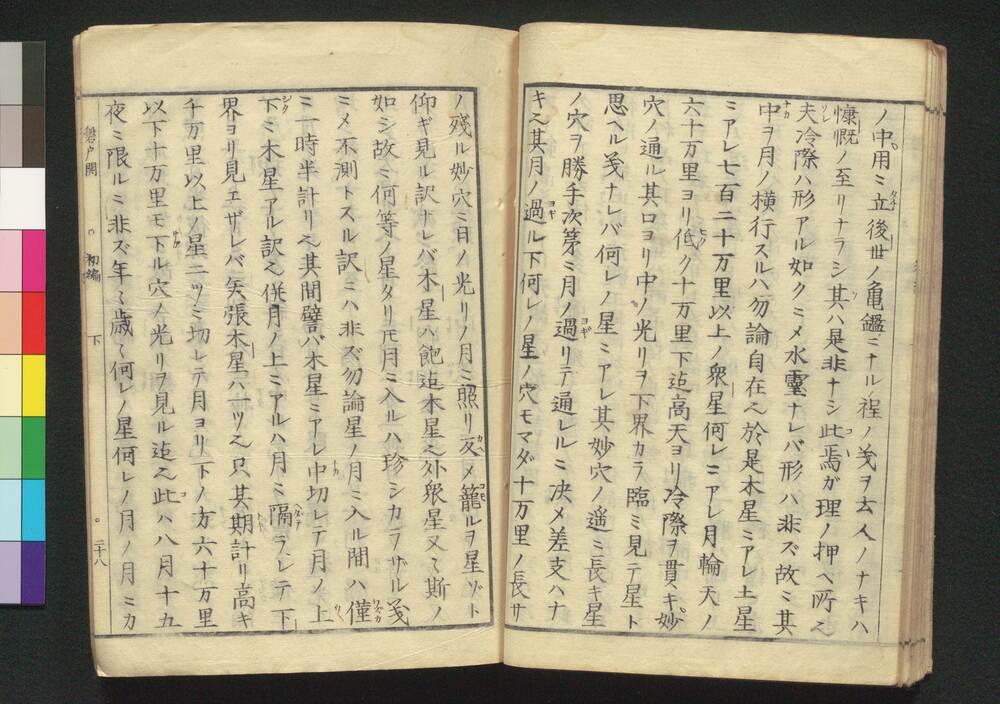 ノ中用ミ立後世ノ亀鑑ニナル程ノ𫝆ヲ云人ノナキハ
慷慨ノ至リナラシ其ハ是非ナシ此焉ガ理ノ押ヘ所之
夫冷際ハ形アル如クミメ水靈ナレバ形ハ非ズ故ミ其
中ヲ月ノ横行スルハ勿論自在之於是木星ミアレ土星
ミアレ七百二十万里以上ノ衆星何レニアレ月輪天ノ
六十万里ヨリ低ク十万里下迠高天ヨリ冷際ヲ貫キ妙
穴ノ通ル其口ヨリ中ノ光リヲ下界カラ臨ミ見テ星ト
思ヘル𫝆ナレバ何レノ星ミアレ其妙穴ノ遥ミ長キ星
ノ穴ヲ勝手次第ミ月ノ過リテ通レルミ决メ差支ハナ
キ之其月ノ過ル下何レノ星ノ穴モマダ十万里ノ長サ
ノ残ル妙穴ミ日ノ光リノ月ミ照リ反メ籠ルヲ星ゾト
仰ギ見ル訳ナレバ木星ハ飽迠木星之外衆星又ミ斯ノ
如シ故ミ何等ノ星タリ𪜈月ミ入ルハ珍シカラザル𫝆
ミメ不測トスル訳ミハ非ズ勿論星ノ月ミ入ル間ハ僅
ミ一時半計リ之其間譬バ木星ミアレ中切レテ月ノ上
下ミ木星アル訳之併月ノ上ミアルハ月ミ隔ラレテ下
界ヨリ見エザレバ矢張木星ハ一ツ之只其期計リ高キ
千万里以上ノ星二ツミ切レテ月ヨリ下ノ方六十万里
以下十万里モ下ル穴ノ光リヲ見ル迠之此ハ八月十五
夜ミ限ルミ非ズ年〻歳〻何レノ星何レノ月ノ月ミカ
磐戸開 ○ 初編 下 ○ 二十八